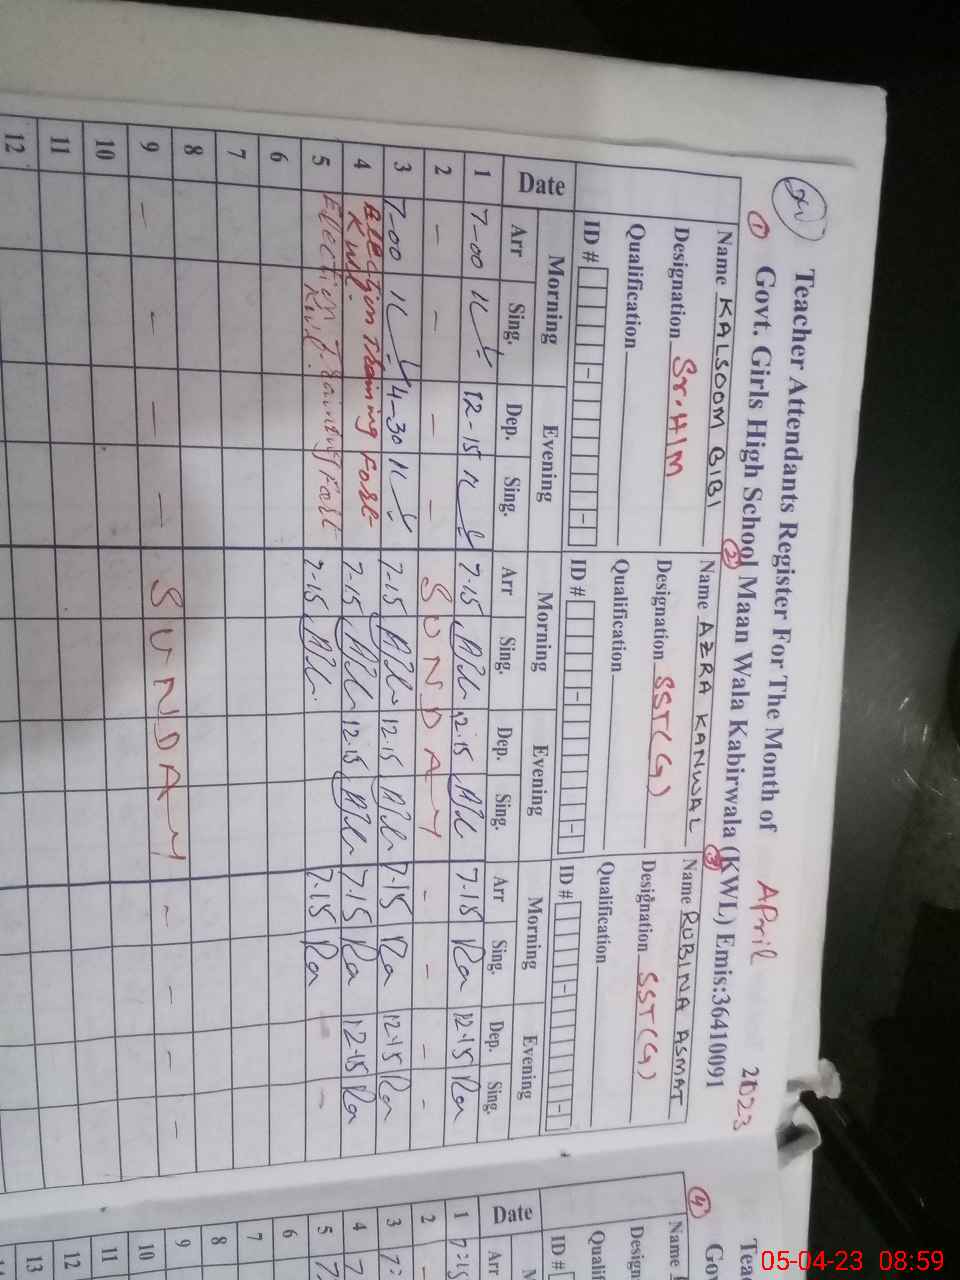 Teacher Attendants Register For The Month of April 2023
Govt. Girls High School Maan Wala Kabirwala (KWL) Emis:36410091
① ② ③
Name KALSOOM BIBI Name AZRA KANWAL Name ROBINA ASMAT
Designation Sr.H/M Designation SST(G) Designation SST(G)
Qualification Qualification Qualification
ID # ID # ID #
Date Morning Evening Morning Evening Morning Evening
Arr Sing. Dep. Sing. Arr Sing. Dep. Sing. Arr Sing. Dep. Sing.
1 7-00 12-15 7-15 12.15 7-15 Ra 12.15 Ra
2 - - - - SUNDAY - - - -
3 7-00 4-30 7-15 12.15 7-15 Ra 12.15 Ra
4 Election Training For Kwl. 7-15 12.15 7.15 Ra 12.15 Ra
5 Election Training For Kwl. 7-15 7.15 Ra - -
6
7
8
9 - - - - SUNDAY - - - -
10
11
12
④
Name
Design
Qualif
ID #
Date
Arr
1 7:15
2 -
3 7:
4 7
5 7
6
7
8
9
10
11
12
13
05-04-23 08:59